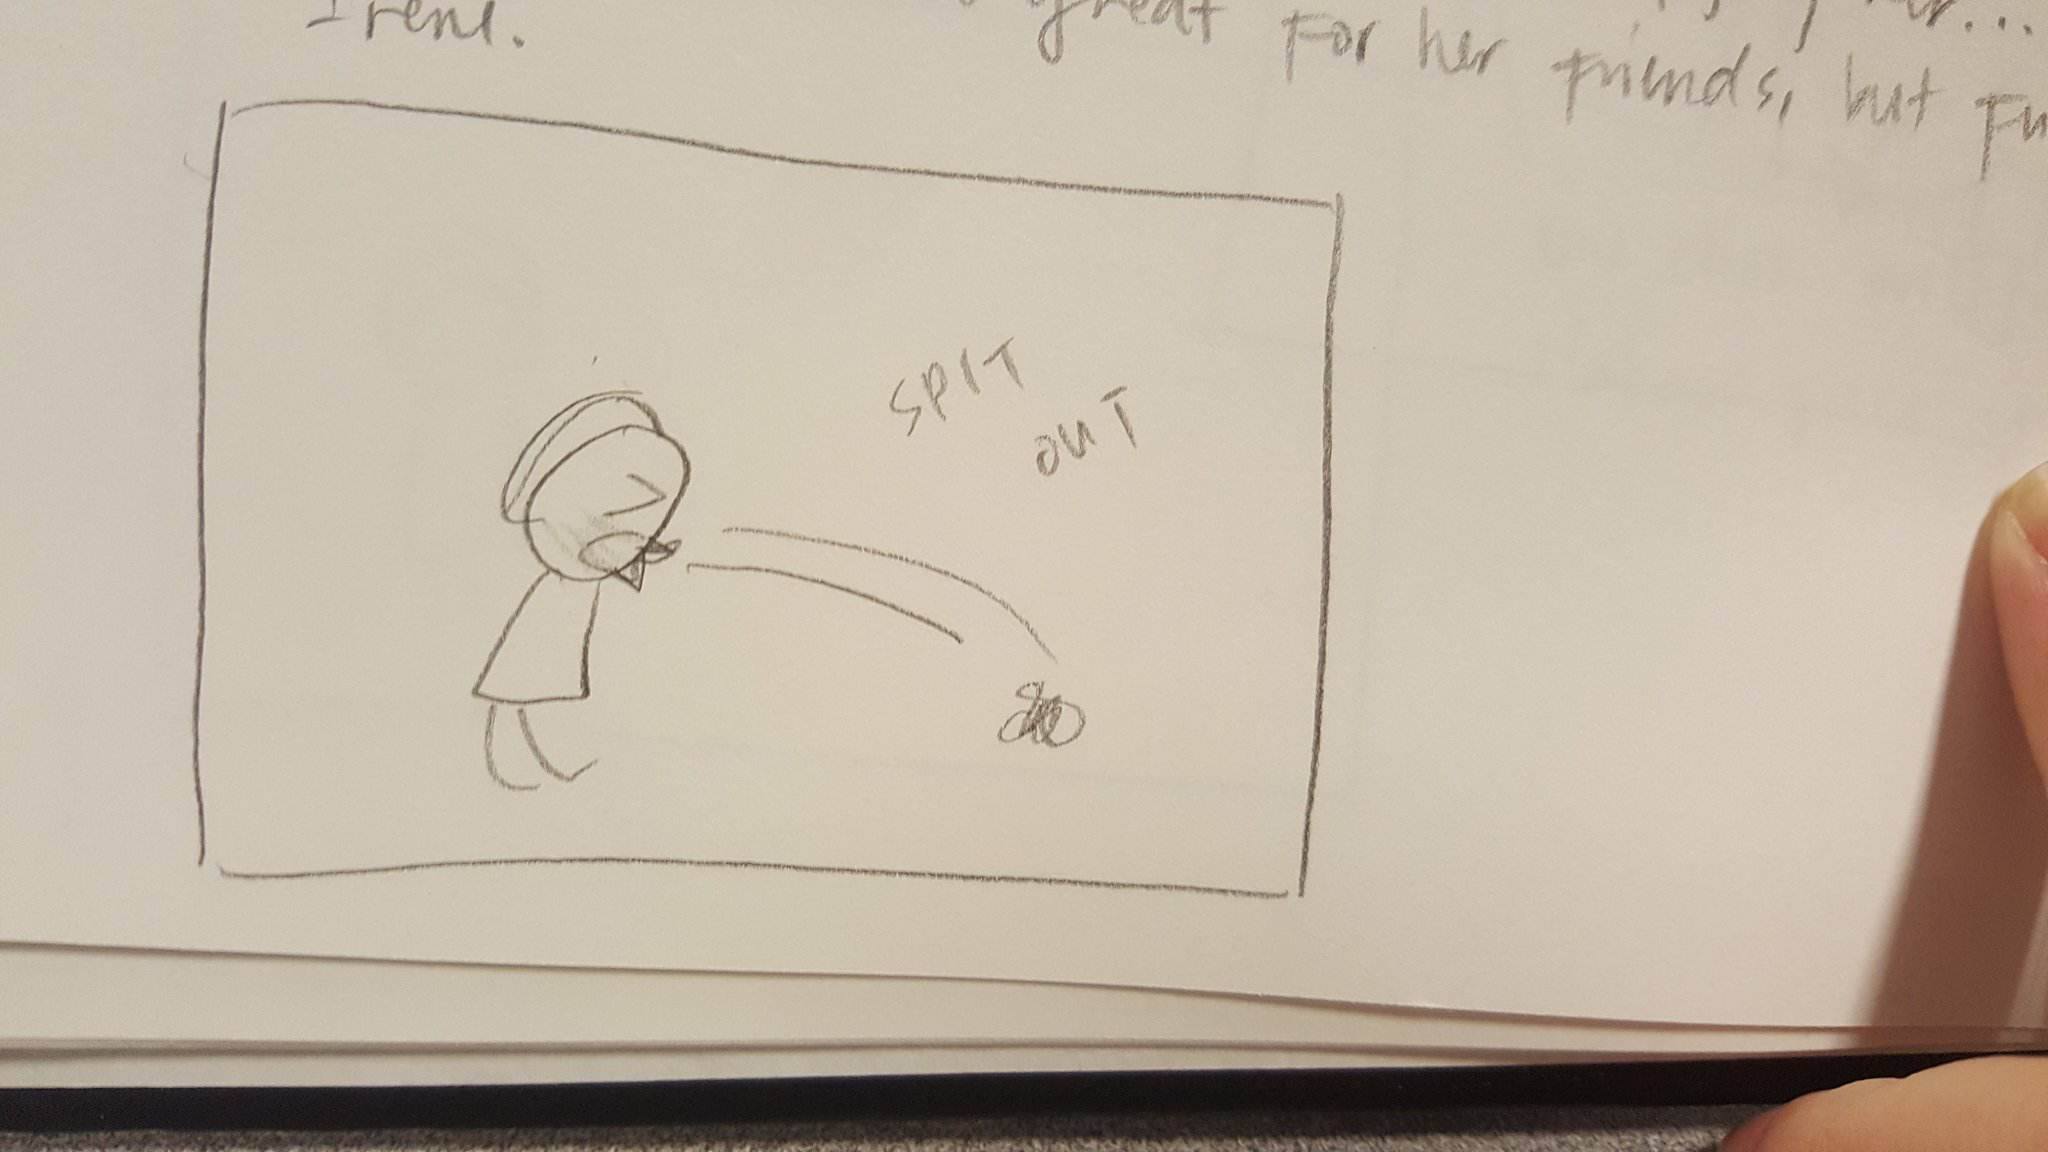 Irene.
great For her Friends, but
SPIT
OUT